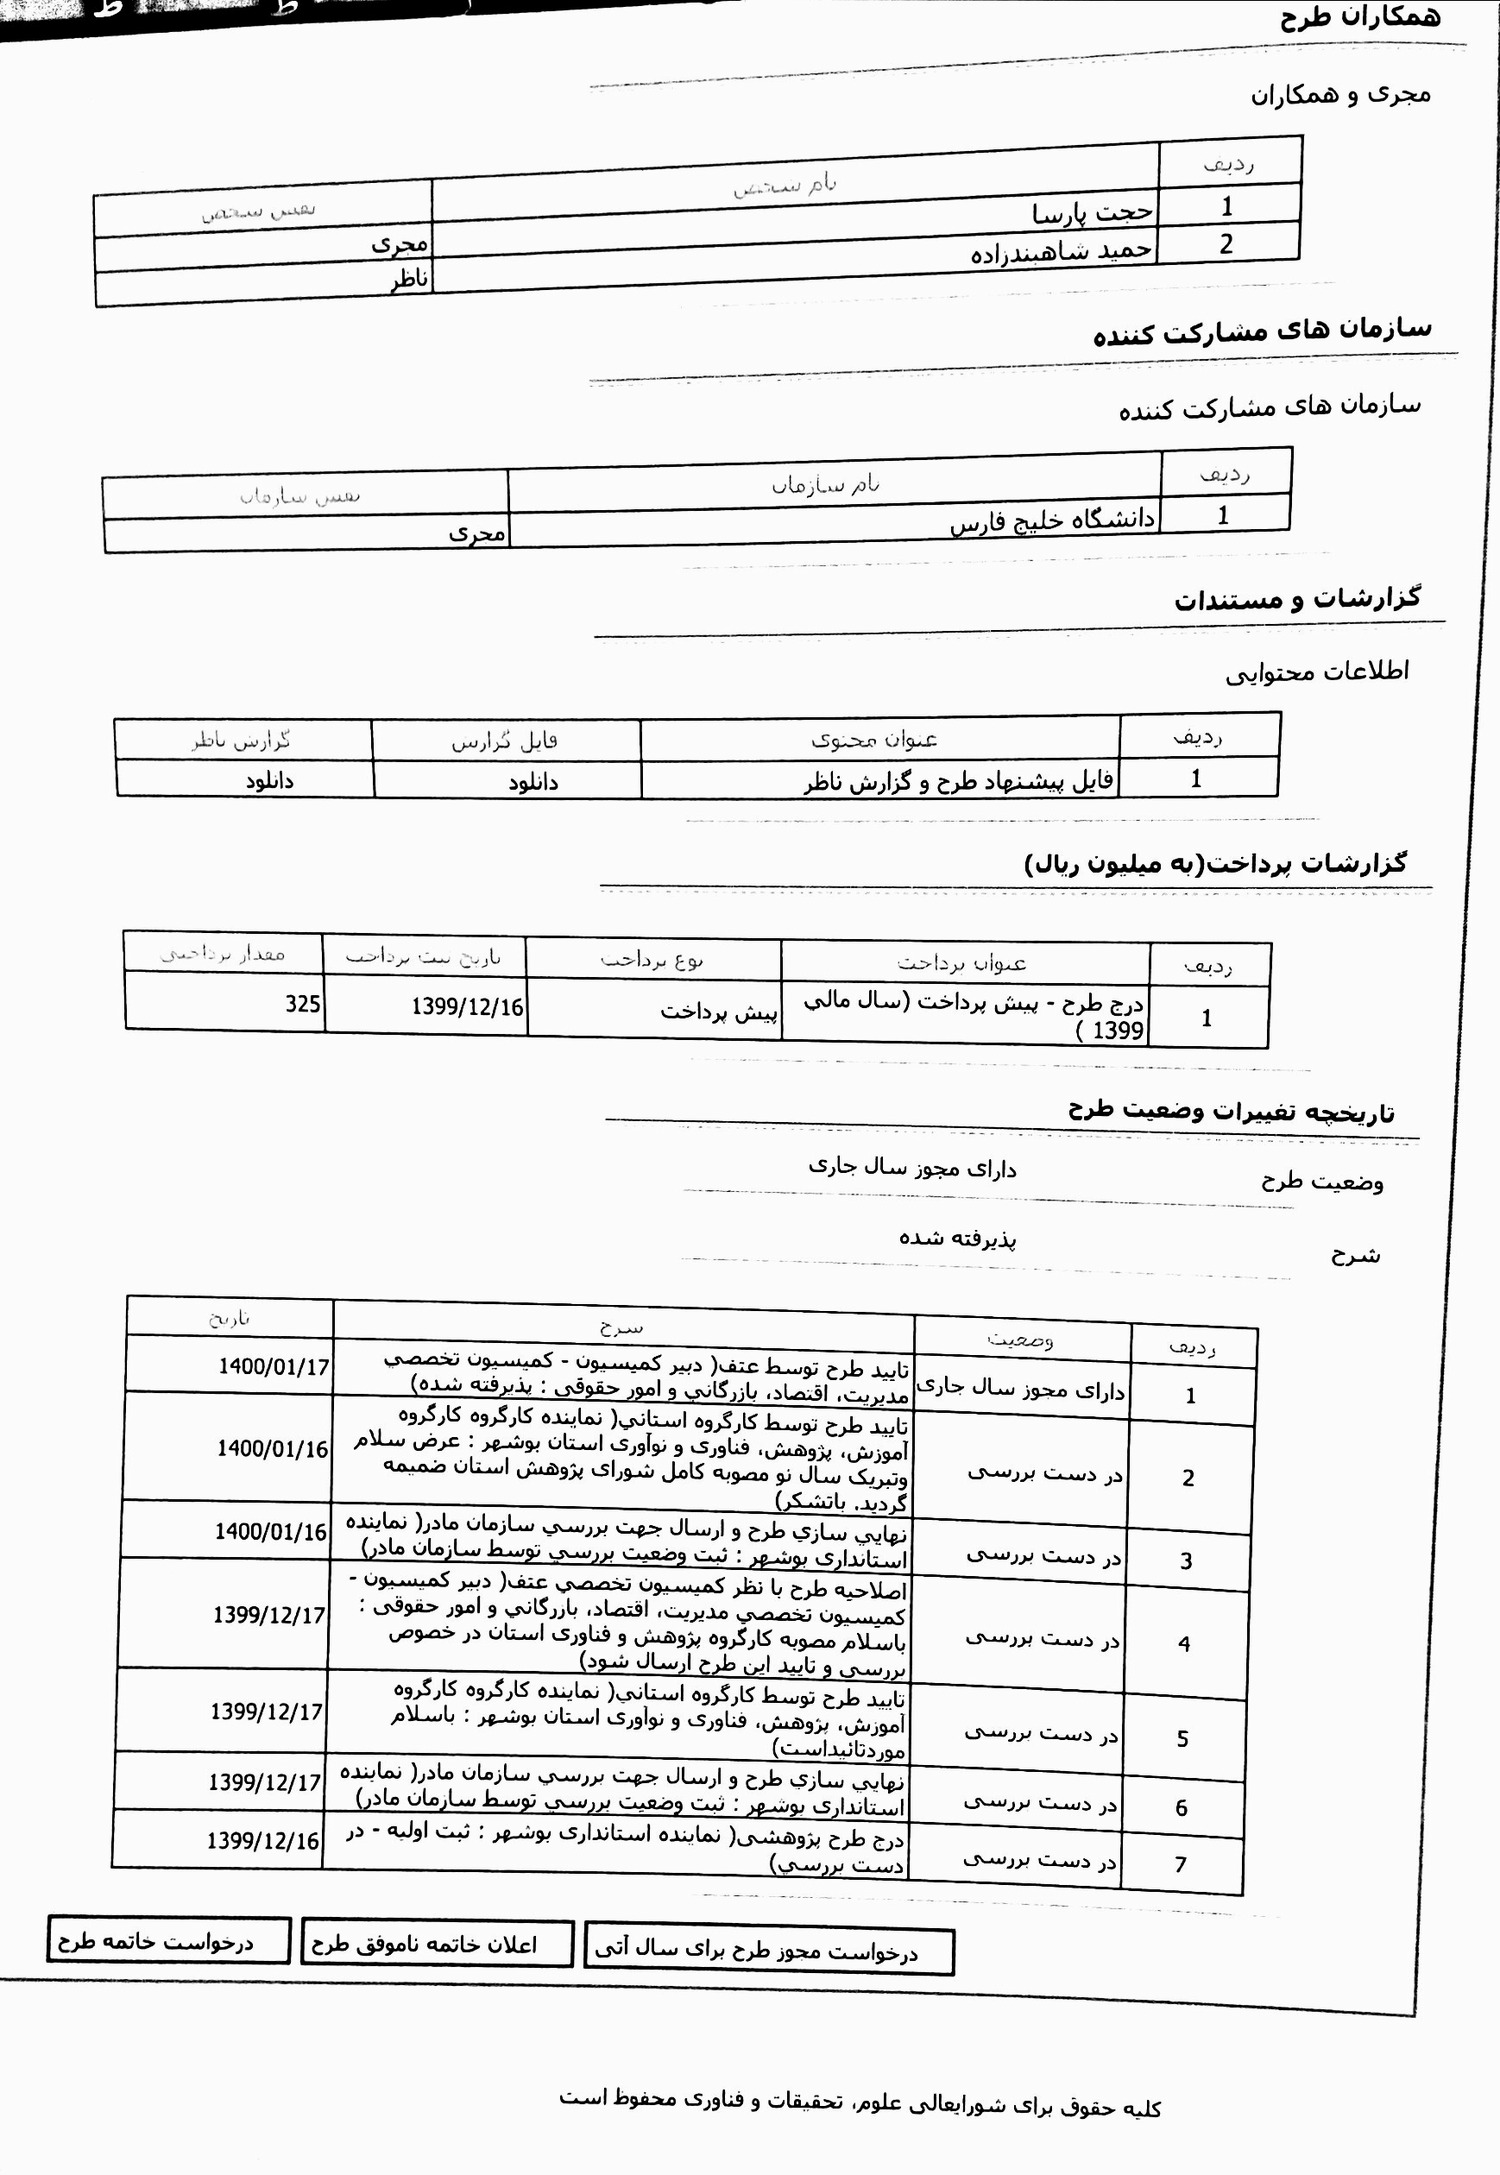 همکاران طرح
مجری و همکاران
ردیف نام شخص نقش شخص
1 حجت پارسا مجری
2 حمید شاهبندزاده ناظر
سازمان های مشارکت کننده
سازمان های مشارکت کننده
ردیف نام سازمان نقش سازمان
1 دانشگاه خلیج فارس مجری
گزارشات و مستندات
اطلاعات محتوایی
ردیف عنوان محتوی فایل گزارش گزارش ناظر
1 فایل پیشنهاد طرح و گزارش ناظر دانلود دانلود
گزارشات پرداخت(به میلیون ریال)
ردیف عنوان پرداخت نوع پرداخت تاریخ ثبت پرداخت مقدار پرداختی
1 درج طرح - پیش پرداخت (سال مالي پیش پرداخت 1399/12/16 325
1399 )
تاریخچه تغییرات وضعیت طرح
وضعیت طرح دارای مجوز سال جاری
شرح پذیرفته شده
ردیف وضعیت شرح تاریخ
1 دارای مجوز سال جاری تایید طرح توسط عتف( دبیر کمیسیون - کمیسیون تخصصي 1400/01/17
مدیریت، اقتصاد، بازرگاني و امور حقوقی : پذیرفته شده)
2 در دست بررسی تایید طرح توسط کارگروه استاني( نماینده کارگروه کارگروه 1400/01/16
آموزش، پژوهش، فناوری و نوآوری استان بوشهر : عرض سلام
وتبریک سال نو مصوبه کامل شورای پژوهش استان ضمیمه
گردید. باتشکر)
3 در دست بررسی نهايي سازي طرح و ارسال جهت بررسي سازمان مادر( نماینده 1400/01/16
استانداری بوشهر : ثبت وضعیت بررسي توسط سازمان مادر)
4 در دست بررسی اصلاحیه طرح با نظر کمیسیون تخصصي عتف( دبیر کمیسیون - 1399/12/17
کمیسیون تخصصي مدیریت، اقتصاد، بازرگاني و امور حقوقی :
باسلام مصوبه کارگروه پژوهش و فناوری استان در خصوص
بررسی و تایید این طرح ارسال شود)
5 در دست بررسی تایید طرح توسط کارگروه استاني( نماینده کارگروه کارگروه 1399/12/17
آموزش، پژوهش، فناوری و نوآوری استان بوشهر : باسلام
موردتائیداست)
6 در دست بررسی نهايي سازي طرح و ارسال جهت بررسي سازمان مادر( نماینده 1399/12/17
استانداری بوشهر : ثبت وضعیت بررسي توسط سازمان مادر)
7 در دست بررسی درج طرح پژوهشی( نماینده استانداری بوشهر : ثبت اولیه - در 1399/12/16
دست بررسي)
درخواست مجوز طرح برای سال آتی اعلان خاتمه ناموفق طرح درخواست خاتمه طرح
کلیه حقوق برای شورایعالی علوم، تحقیقات و فناوری محفوظ است